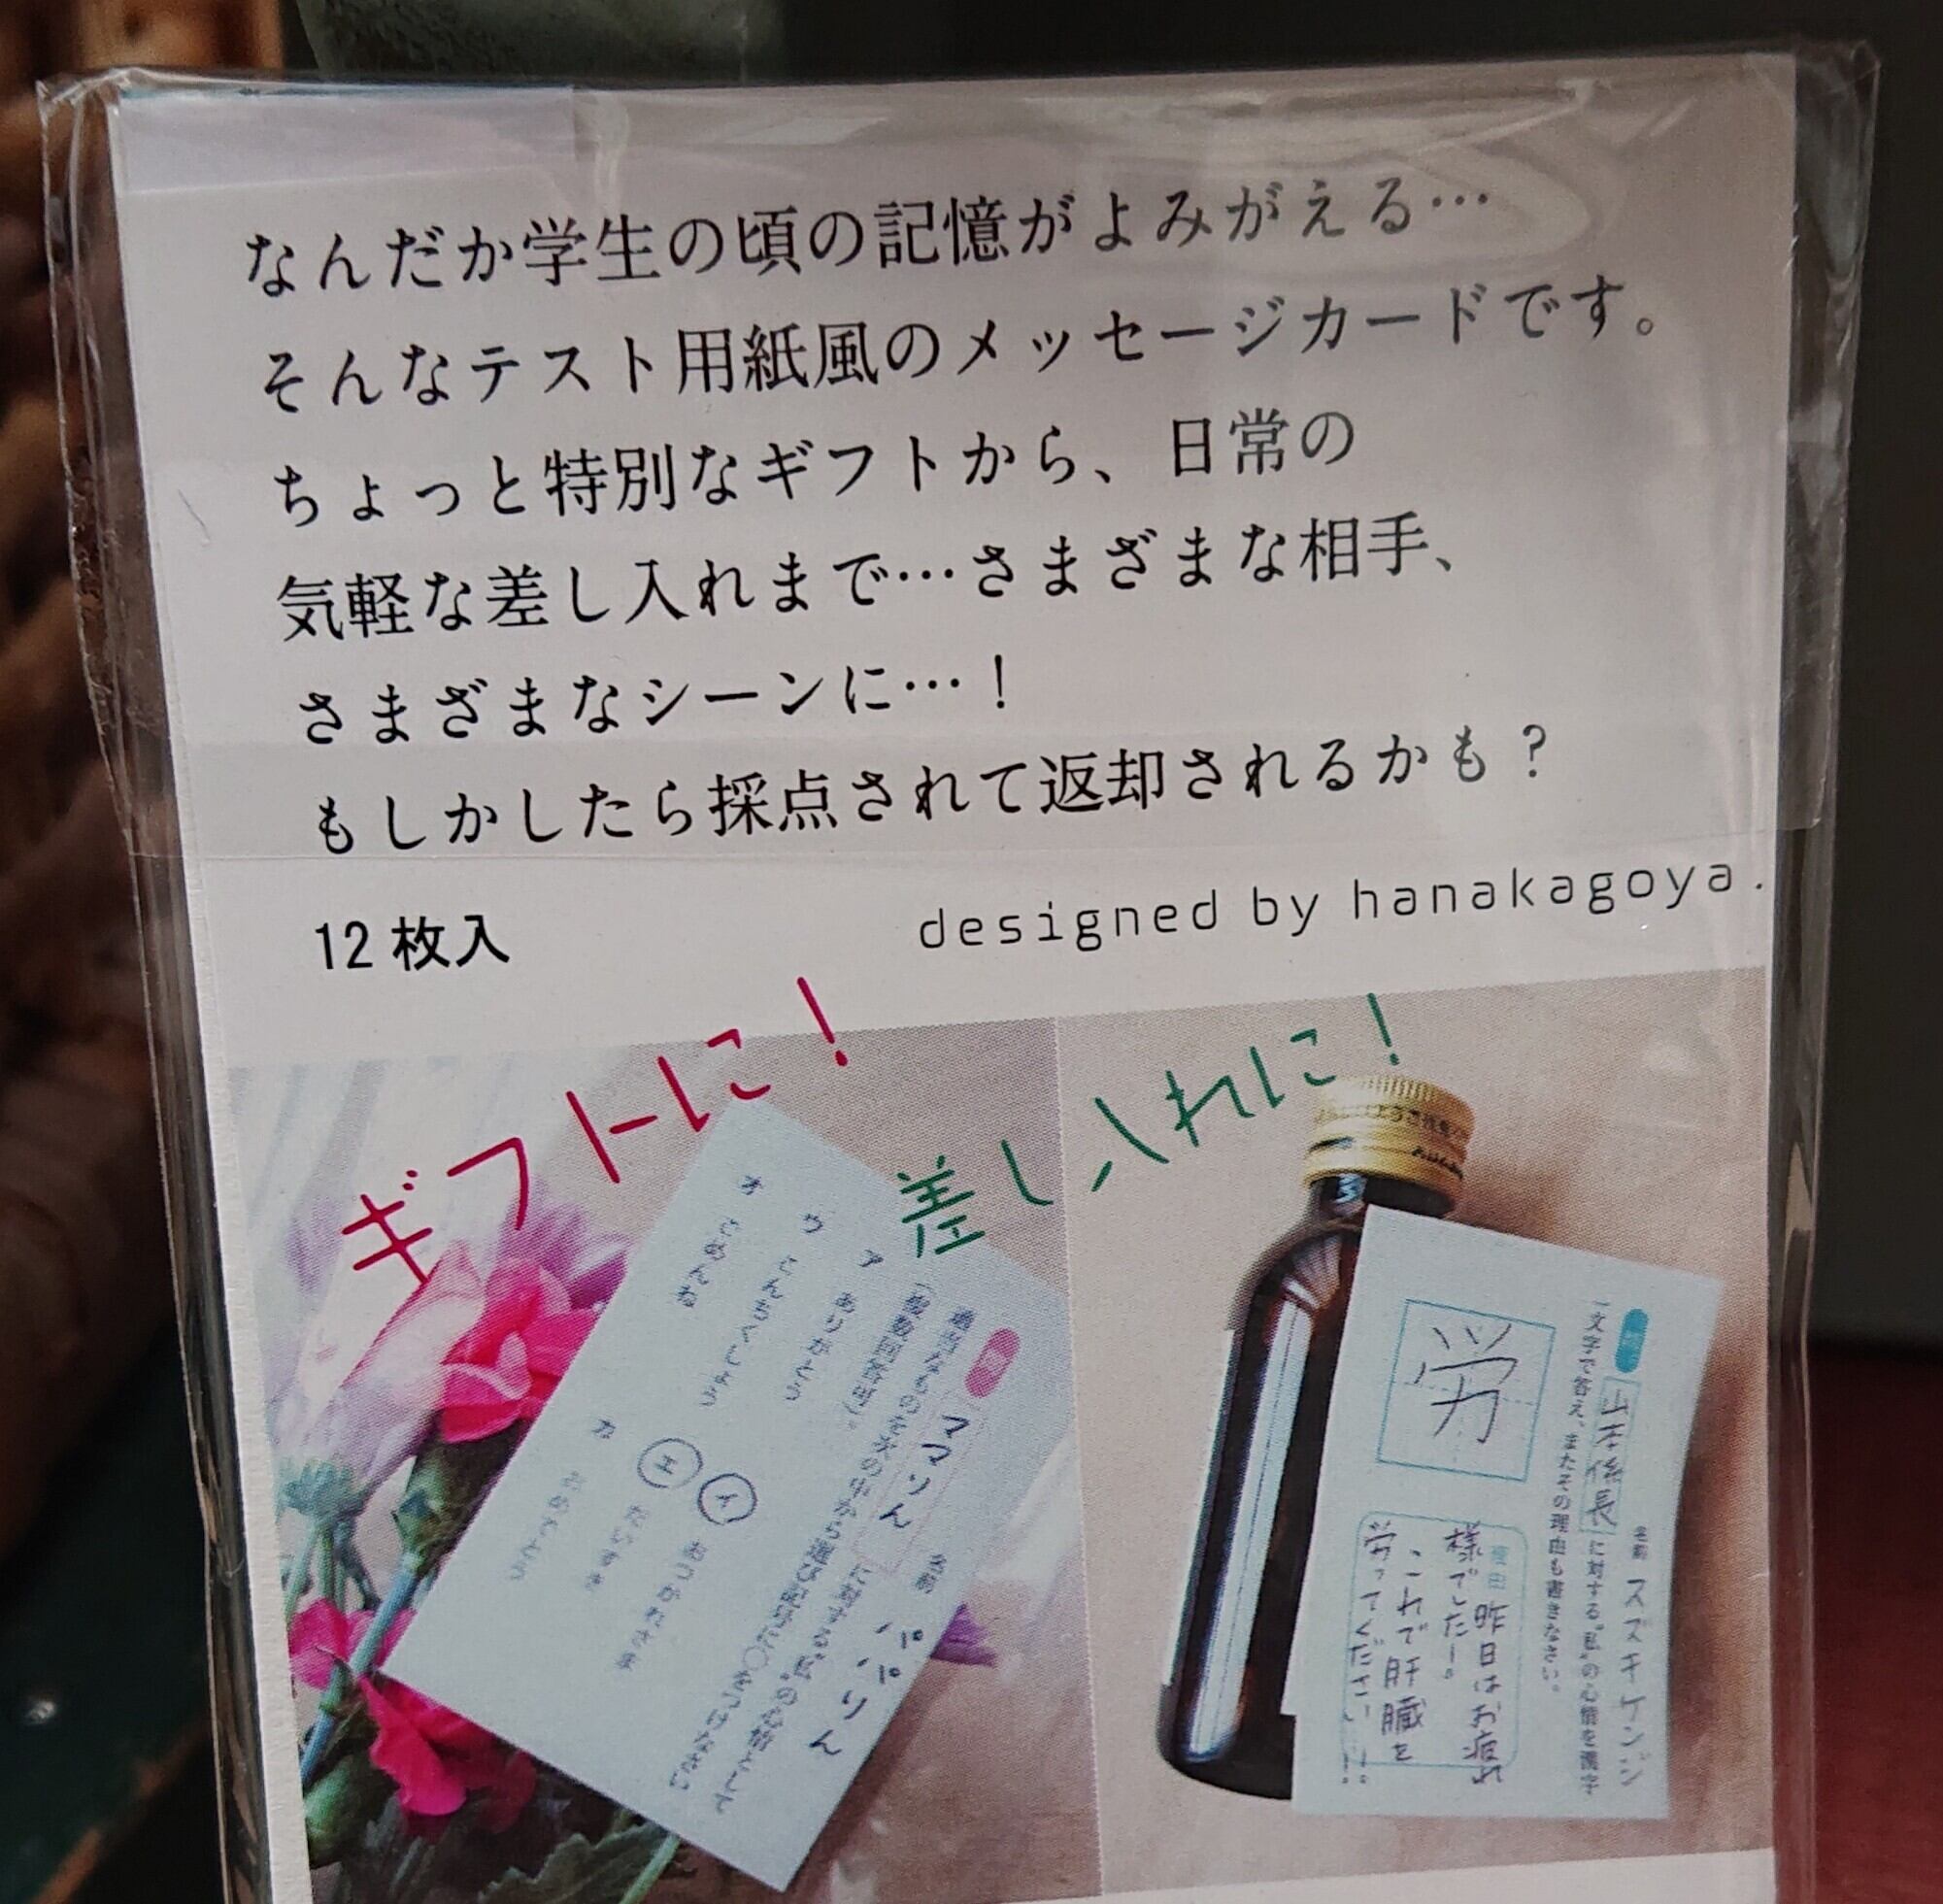 なんだか学生の頃の記憶がよみがえる…
そんなテスト用紙風のメッセージカードです。
ちょっと特別なギフトから、日常の
気軽な差し入れまで…さまざまな相手、
さまざまなシーンに…！
もしかしたら採点されて返却されるかも？
12枚入
designed by hanakagoya.
ギフトに！
差し入れに！
ママりん に対する“私”の心情として
適当なものを次の中から選び記号に○をつけなさい
（複数回答可）。
名前 パパりん
ア ありがとう
イ おつかれさま
ウ こんちくしょう
エ だいすき
オ ごめんね
カ おめでとう
名前 スズキケンジ
山本係長 に対する“私”の心情を漢字
一文字で答え、またその理由も書きなさい。
労
理由 昨日はお疲れ
様でしたー。
これで肝臓を
労ってください！！